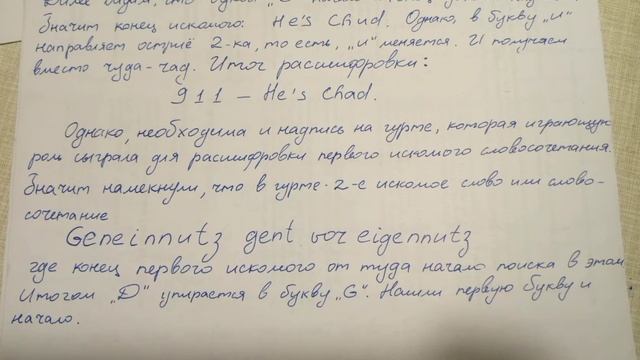 Значит конец искомого: He's Chud. Однако, в букву „и"
направляет остриё 2-ка, то есть, „и" меняется. И получаем
вместо чуда-чад. Итог расшифровки:
911 – He's Chad.
Однако, необходима и надпись на гурте, которая играющую
роль сыграла для расшифровки первого искомого словосочетания.
Значит намекнули, что в гурте 2-е искомое слово или слово-
сочетание
Geneinnutz gent vor eigennutz
где конец первого искомого от туда начало поиска в этом
Итогом „D" упирается в букву „G". Нашли первую букву и
начало.